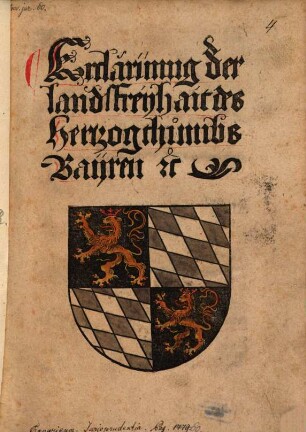 Erclärunng der
landsfreyhait des
Hertzogthumbs
Bayren ꝛc